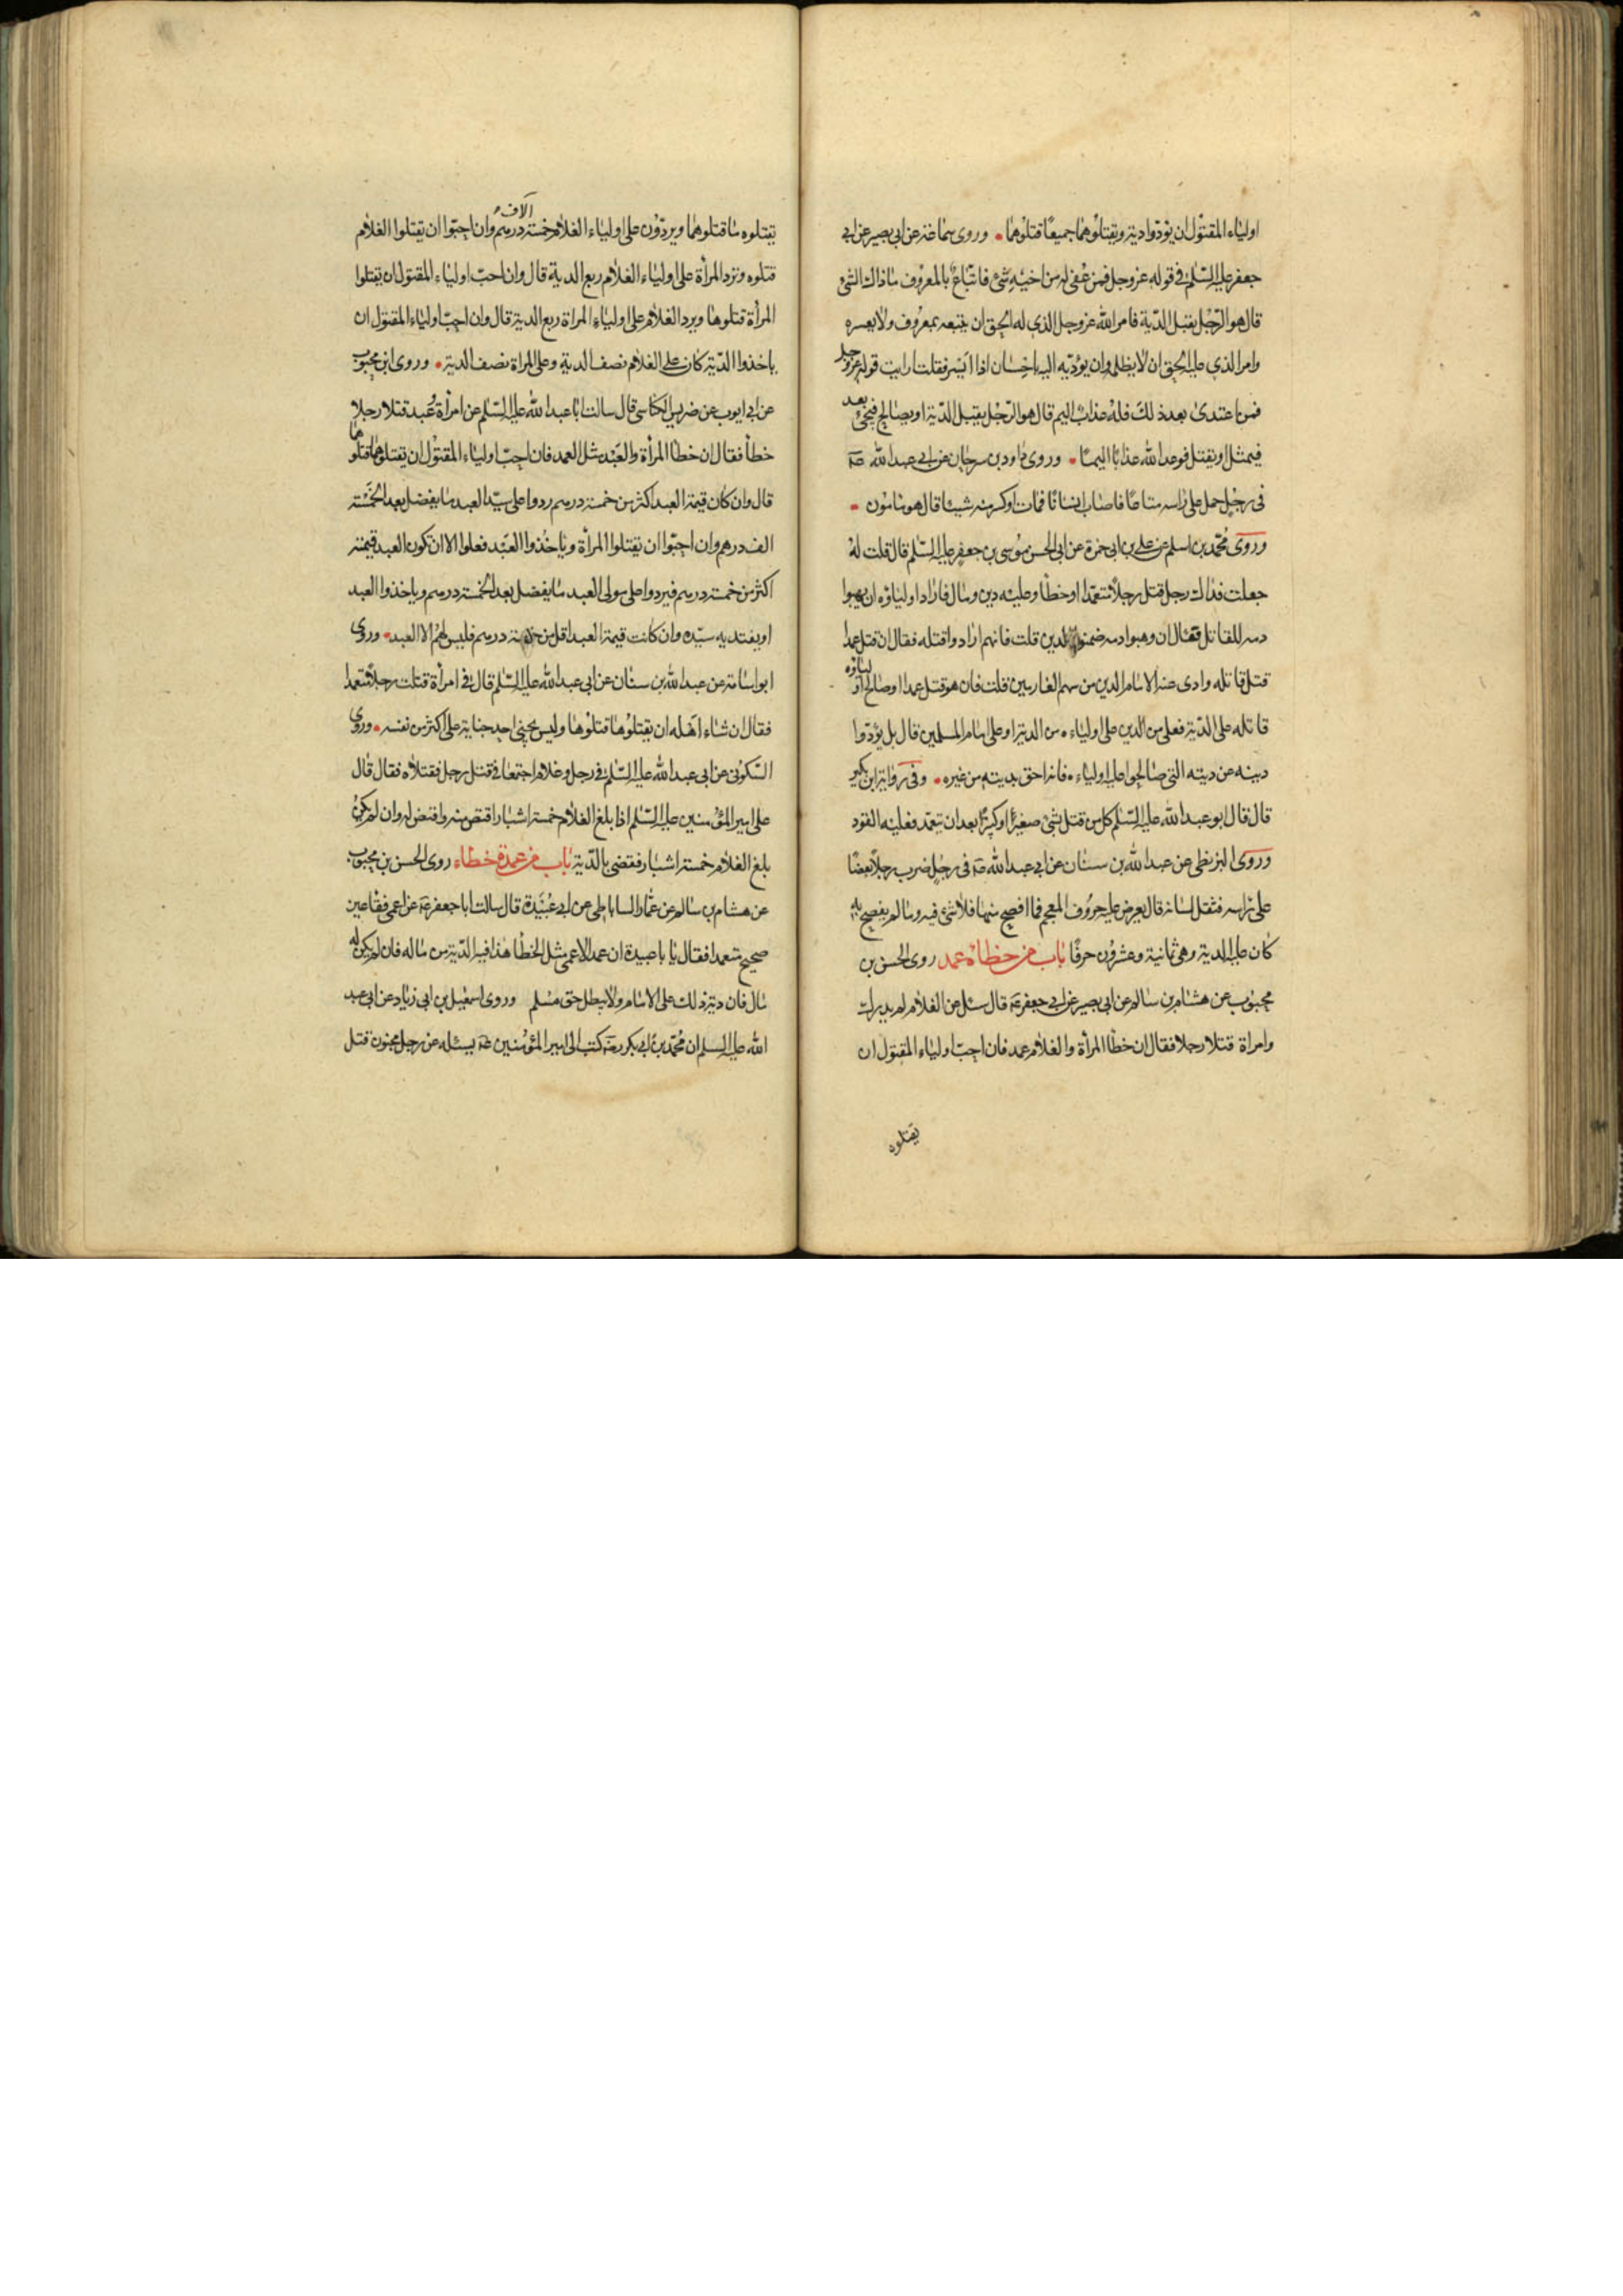 اولياء المقتول ان يؤدوا دية ويقتلوهما جميعا قتلوهما وروى سماعة عن ابى بصير عن ابى
جعفر عليه السلم فى قوله عز وجل فمن عفى له من اخيه شئ فاتباع بالمعروف ما ذاك الشئ
قال هو الرجل يقبل الدية فامر الله عز وجل الذى له الحق ان يتبعه بمعروف ولا يعسره
وامر الذى عليه الحق ان لا يظلمه وان يؤديه اليه باحسان اذا ايسر فقلت ارايت قوله عز وجل
فمن اعتدى بعد ذلك فله عذاب اليم قال هو الرجل يقبل الدية او يصالح فيجئ بعد
فيمثل او يقتل فوعد الله عذابا اليما وروى داود بن سرحان عن ابى عبد الله عه
فى رجل حمل على راسه متاعا فاصاب انسانا فمات او كسر منه شيئا قال هو مامون
وروى محمد بن اسلم عن على بن ابى حمزة عن ابى الحسن موسى بن جعفر عليه السلم قال قلت له
جعلت فداك رجل قتل رجلا متعمدا او خطأ وعليه دين ومال فاراد اولياؤه ان يهبوا
دمه للقاتل فقال ان وهبوا دمه ضمنوا الدين قلت فانهم ارادوا قتله فقال ان قتل عمدا
قتل قاتله وادى عنه الامام الدين من سهم الغارمين قلت فان هو قتل عمدا وصالح اولياؤه
قاتله على الدية فعلى من الدين على اولياءه من الدية او على امام المسلمين قال بل يؤدوا
دينه من ديته التى صالحوا عليه اولياءه فانه احق بديته من غيره وفى رواية ابن بكير
قال قال ابو عبد الله عليه السلم كل من قتل بشئ صغيرا او كبيرا بعد ان يتعمد فعليه القود
وروى البزنطى عن عبد الله بن سنان عن ابى عبد الله عه فى رجل ضرب رجلا بعصا
على راسه فثقل لسانه قال يعرض عليه حروف المعجم فما افصح منها فلا شئ فيه وما لم يفصح به
كان عليه الدية وهى ثمانية وعشرون حرفا باب من خطاه عمد روى الحسن بن
محبوب عن هشام بن سالم عن ابى بصير عن ابى جعفر عه قال سئل عن الغلام لم يدرك
وامراة قتلا رجلا فقال ان خطأ المرأة والغلام عمد فان احب اولياء المقتول ان
يقتلوه
الاف
يقتلوه ما قتلوهما ويردون على اولياء الغلام خمسة درهم وان احبوا ان يقتلوا الغلام
قتلوه وترد المرأة على اولياء الغلام ربع الدية قال وان احب اولياء المقتول ان يقتلوا
المرأة قتلوها ويرد الغلام على اولياء المراة ربع الدية قال وان احب اولياء المقتول ان
ياخذوا الدية كان على الغلام نصف الدية وعلى المراة نصف الدية وروى ابن محبوب
عن ابى ايوب عن ضريس الكناسى قال سالت ابا عبد الله عليه السلم عن امرأة وعبد قتلا رجلا
خطأ فقال ان خطأ المرأة والعبد مثل العمد فان احب اولياء المقتول ان يقتلوهما قتلوهما
قال وان كان قيمة العبد اكثر من خمسة درهم ردوا على سيد العبد ما يفضل بعد الخمسة
الف درهم وان احبوا ان يقتلوا المرأة وياخذوا العبد فعلوا الا ان تكون العبد قيمته
اكثر من خمسة درهم فيردوا على مولى العبد ما يفضل بعد الخمسة درهم وياخذوا العبد
او يفتديه سيده وان كانت قيمة العبد اقل من خمسة درهم فليس لهم الا العبد وروى
ابو اسامة عن عبد الله بن سنان عن ابى عبد الله عليه السلم قال فى امرأة قتلت رجلا متعمدا
فقال ان شاء اهله ان يقتلوها قتلوها وليس يجنى احد جناية على اكثر من نفسه وروى
السكونى عن ابى عبد الله عليه السلم فى رجل وغلام اجتمعا فى قتل رجل فقتلاه فقال قال
على امير المؤمنين عليه السلم اذا بلغ الغلام خمسة اشبار اقتص منه واقتص له وان لم يكن
بلغ الغلام خمسة اشبار فقضى بالدية باب من عمده خطاء روى الحسن بن محبوب
عن هشام بن سالم عن عمار الساباطى عن ابى عبيدة قال سالت ابا جعفر عه عن اعمى فقا عين
صحيح متعمدا فقال يا با عبيدة ان عمد الاعمى مثل الخطأ هذا فيه الدية من ماله فان لم يكن له
مال فان دية ذلك على الامام ولا يبطل حق مسلم وروى اسمعيل بن ابى زياد عن ابى عبد
الله عليه السلم ان محمد بن ابى بكر رحه كتب الى امير المؤمنين عه يسئله عن رجل مجنون قتل